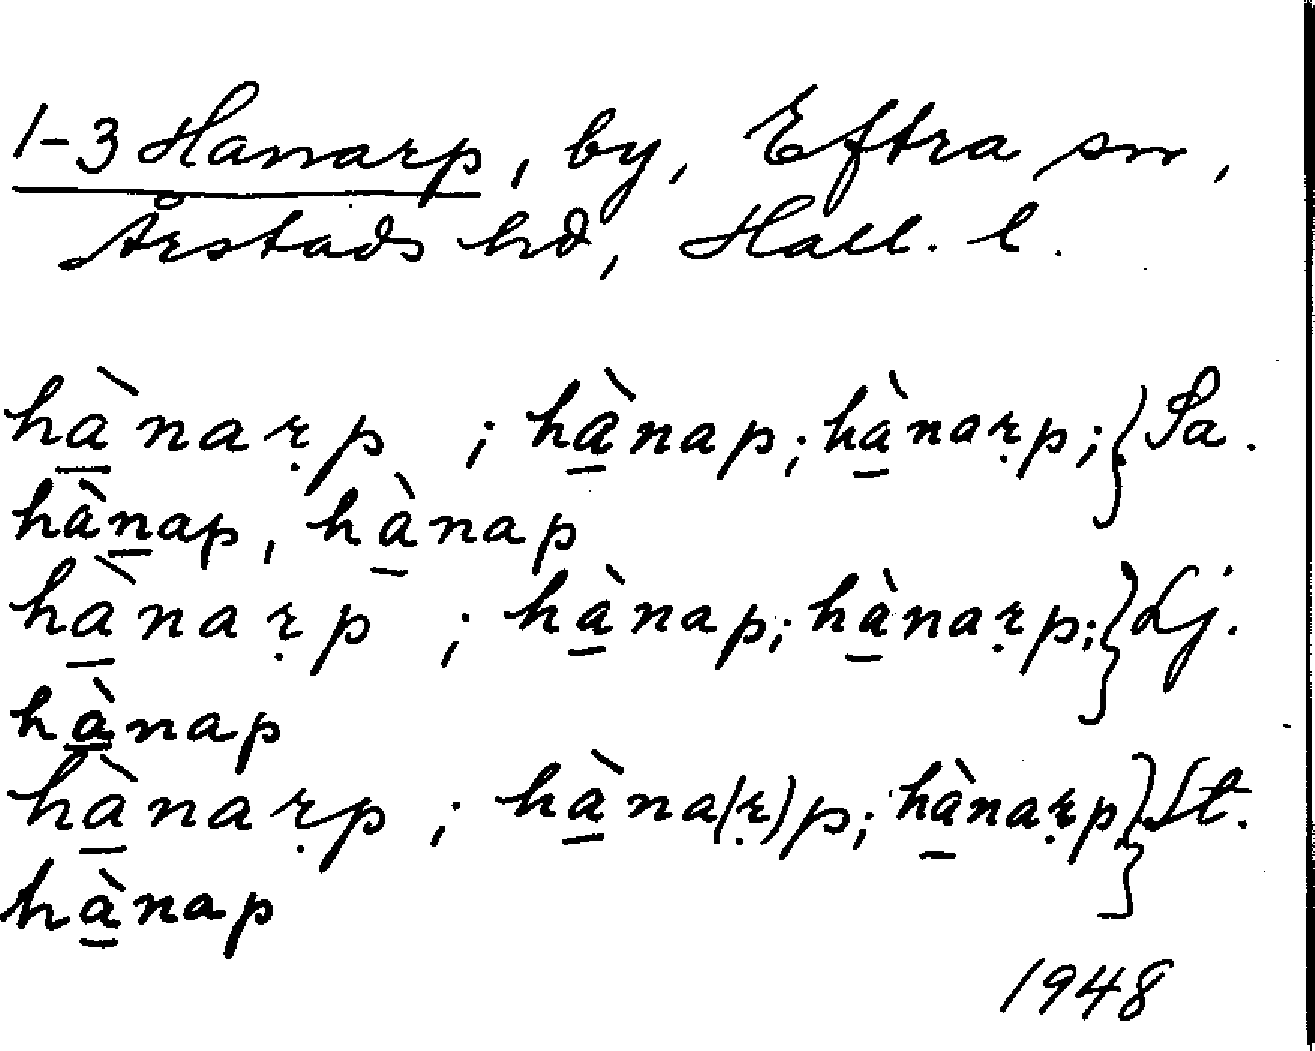 1-3 Hanarp, by, Eftra sn,
Årstads hd, Hall. l.
hà̱narp̣ ; hà̱nap; hà̱naṛp; } Sa.
hàṉap, hà̱nap
hà̱naṛp ; hà̱nap; hà̱naṛp; } Lj.
hà̱nap
hà̱naṛp ; hà̱na(ṛ)p; hà̱naṛp } St.
hà̱nap
1948